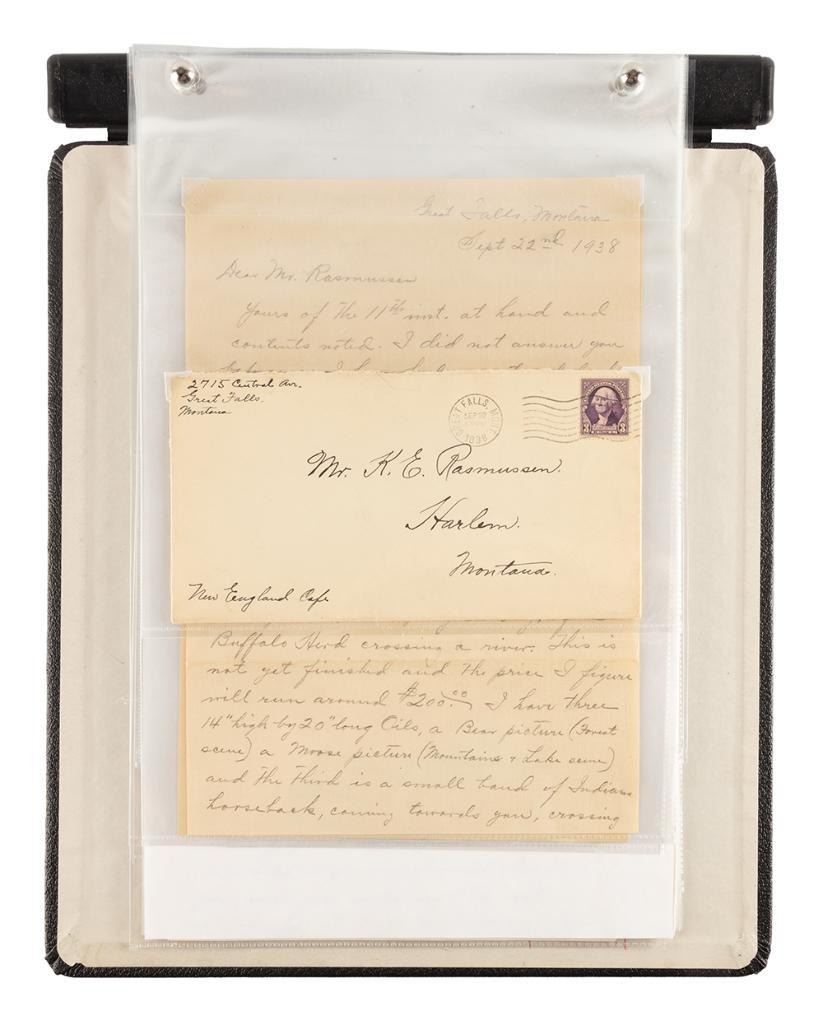 Great Falls, Montana
Sept 22nd 1938
Dear Mr. Rasmussen
Yours of the 11th inst. at hand and
contents noted. I did not answer your
2715 Central Ave.
Great Falls.
Montana
GREAT FALLS, MONT.
SEP 22
1938
3 3
Mr. K. E. Rasmussen.
Harlem.
Montana.
New England Cafe
Buffalo Herd crossing a river. This is
not yet finished and the price I figure
will run around $200.00. I have three
14" high by 20" long Oils, a Bear picture (Forest
scene) a Moose picture (Mountains & Lake scene)
and the third is a small band of Indians
horseback, coming towards you, crossing